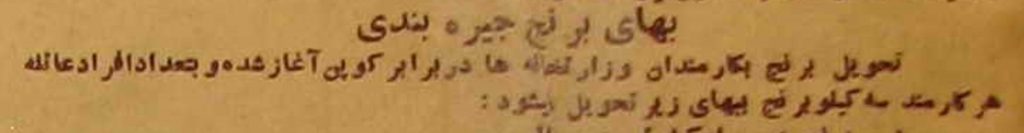 بهای برنج جیره بندی
تحویل برنج بکارمندان وزارتخانه ها در برابر کوپن آغاز شده و بتعداد افراد عائله
هر کارمند سه کیلو برنج ببهای زیر تحویل میشود: